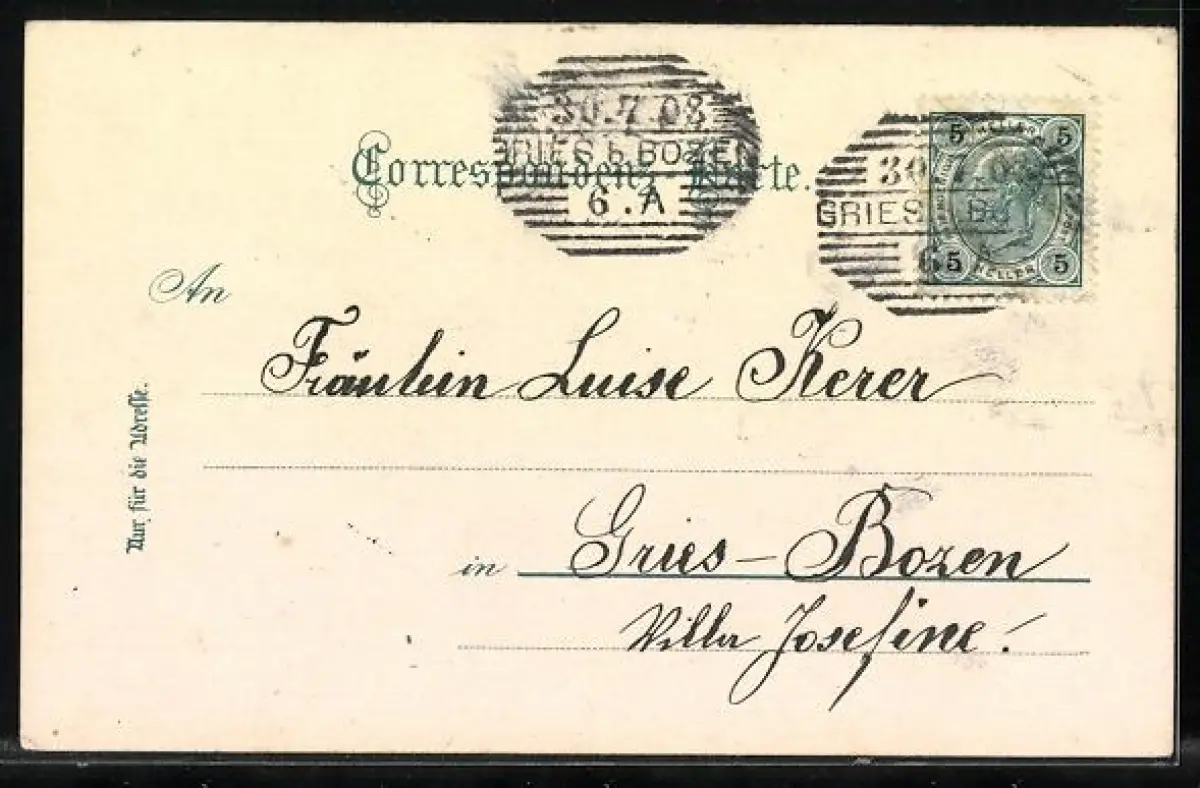 30.7.03
GRIES b. BOZEN
6.A
Correspondenz-Karte.
5 5
30 7 03
GRIES BO
6
5 HELLER 5
An
Fräulein Luise Kerer
Nur für die Adresse.
in Gries-Bozen
Villa Josefine!